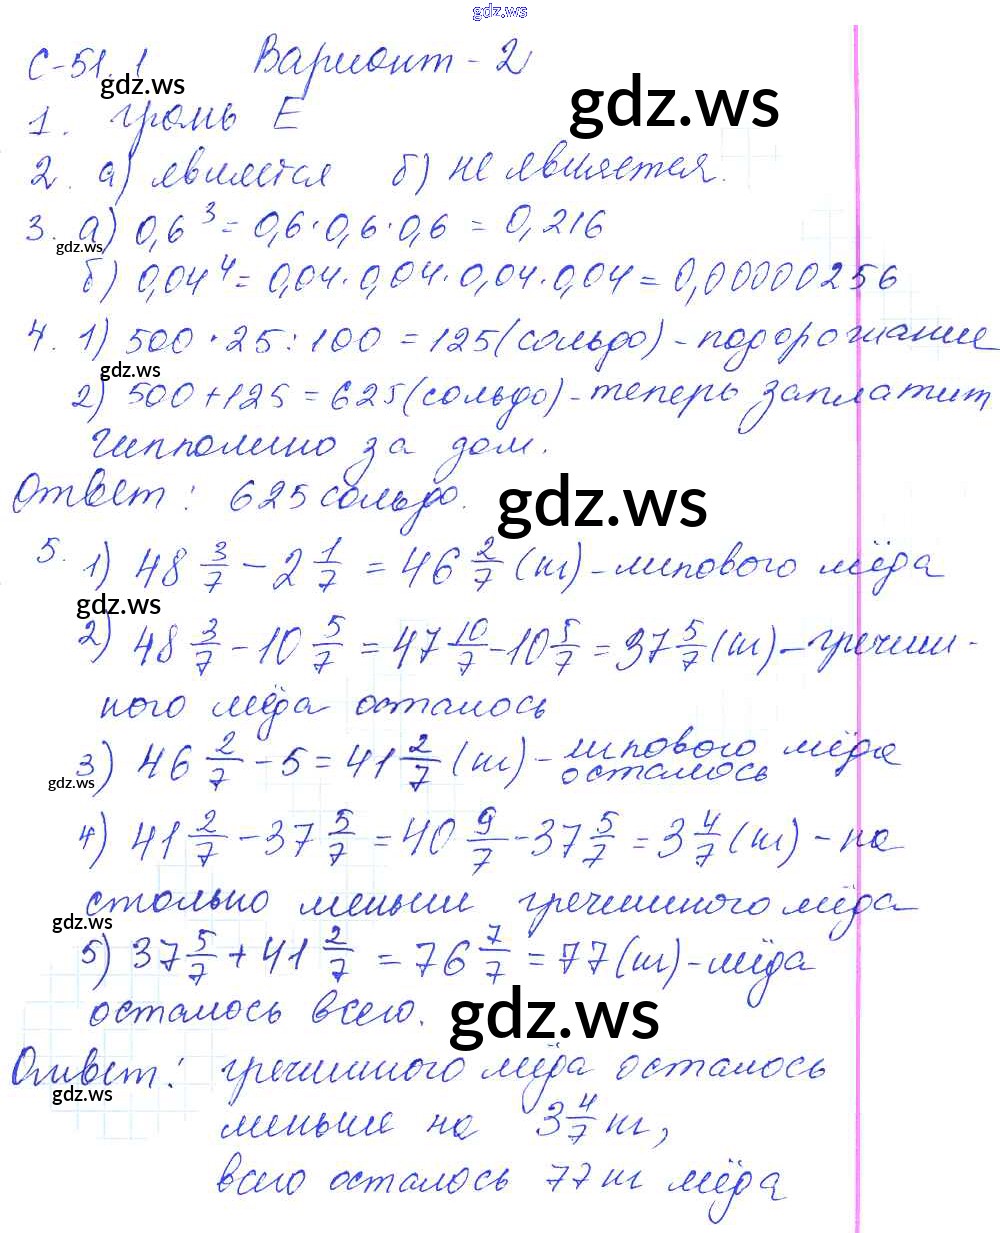 gdz.ws
С-51.1 Вариант - 2
gdz.ws
gdz.ws
1. грамь Е
2. а) является б) не является.
3. а) 0,6³ = 0,6·0,6·0,6 = 0,216
gdz.ws
б) 0,04⁴ = 0,04·0,04·0,04·0,04 = 0,00000256
4. 1) 500 · 25 : 100 = 125 (сольдо) - подорожание
gdz.ws
2) 500 + 125 = 625 (сольдо) - теперь заплатит
Чипполино за дом.
Ответ: 625 сольдо.
gdz.ws
5. 1) 48 3/7 - 2 1/7 = 46 2/7 (кг) - липового мёда
gdz.ws
2) 48 3/7 - 10 5/7 = 47 10/7 - 10 5/7 = 37 5/7 (кг) - гречиш-
ного мёда осталось
3) 46 2/7 - 5 = 41 2/7 (кг) - липового мёда
осталось
gdz.ws
4) 41 2/7 - 37 5/7 = 40 9/7 - 37 5/7 = 3 4/7 (кг) - на
столько меньше гречишного мёда
gdz.ws
5) 37 5/7 + 41 2/7 = 76 7/7 = 77 (кг) - мёда
осталось всего.
gdz.ws
Ответ: гречишного мёда осталось
gdz.ws
меньше на 3 4/7 кг,
всего осталось 77 кг мёда